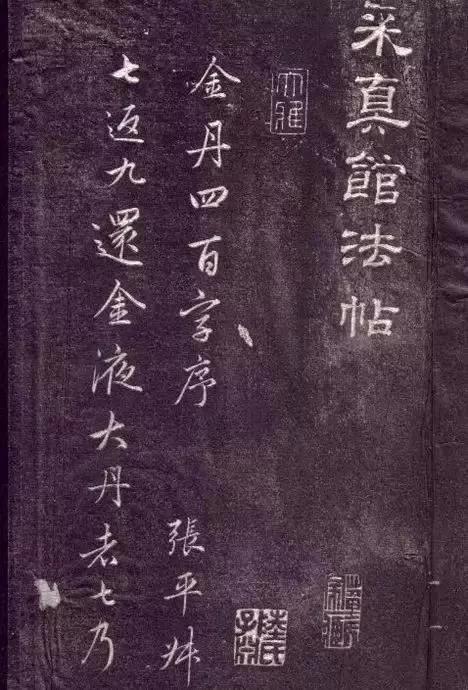 采真館法帖
大雅
金丹四百字序
張平叔
七返九還金液大丹者七乃